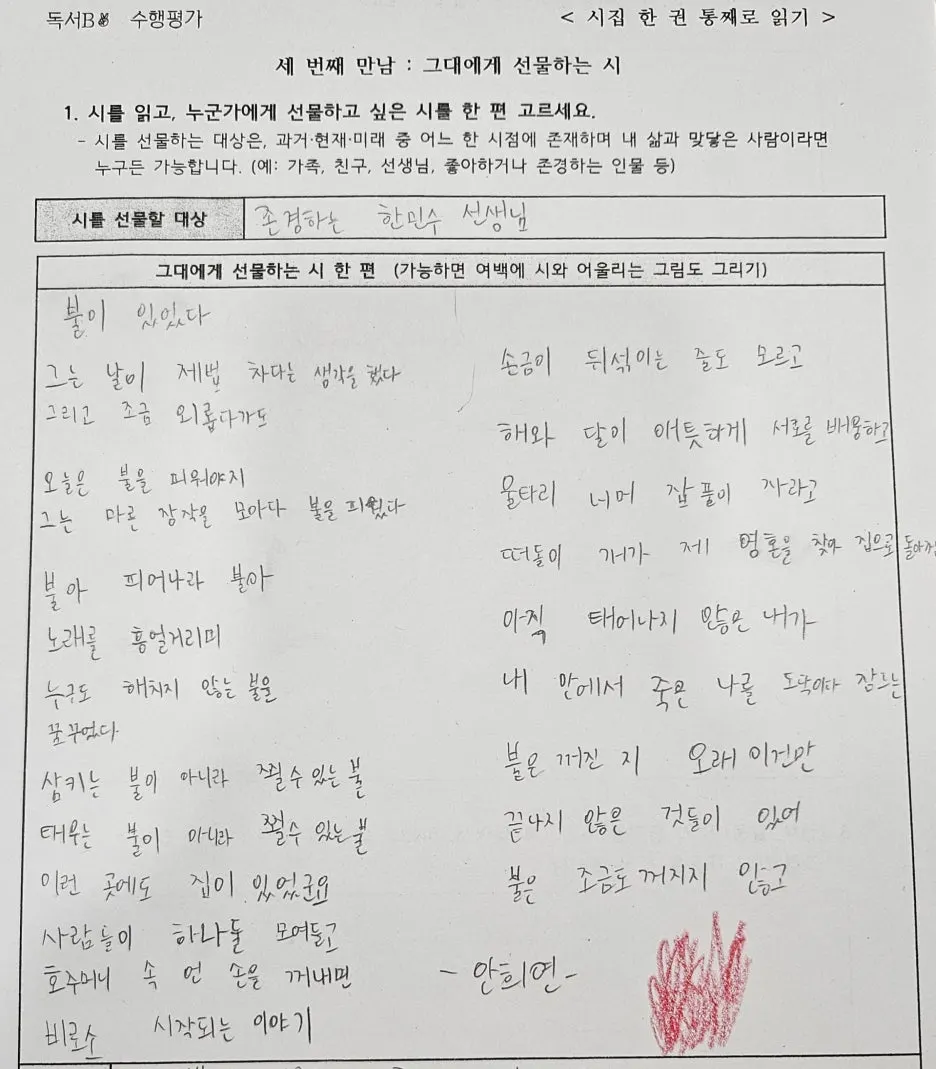 독서B 수행평가
< 시집 한 권 통째로 읽기 >
세 번째 만남 : 그대에게 선물하는 시
1. 시를 읽고, 누군가에게 선물하고 싶은 시를 한 편 고르세요.
- 시를 선물하는 대상은, 과거·현재·미래 중 어느 한 시점에 존재하며 내 삶과 맞닿은 사람이라면
누구든 가능합니다. (예: 가족, 친구, 선생님, 좋아하거나 존경하는 인물 등)
시를 선물할 대상
존경하는 한민수 선생님
그대에게 선물하는 시 한 편 (가능하면 여백에 시와 어울리는 그림도 그리기)
불이 있었다
그는 날이 제법 차다는 생각을 했다
그리고 조금 외롭다가도
오늘은 불을 피워야지
그는 마른 장작을 모아다 불을 피웠다
불아 피어나라 불아
노래를 흥얼거리며
누구도 해치지 않는 불을
꿈꾸었다
삼키는 불이 아니라 쬘 수 있는 불
태우는 불이 아니라 쬘 수 있는 불
이런 곳에도 집이 있었군요
사람들이 하나둘 모여들고
호주머니 속 언 손을 꺼내면
비로소 시작되는 이야기
손금이 뒤섞이는 줄도 모르고
해와 달이 애틋하게 서로를 배웅하고
울타리 너머 잡풀이 자라고
떠돌이 개가 제 영혼을 찾아 집으로
아직 태어나지 않은 내가
내 안에서 죽은 나를 도닥이다 잠드는
불은 꺼진 지 오래이건만
끝나지 않은 것들이 있어
불은 조금도 꺼지지 않고
- 안희연 -